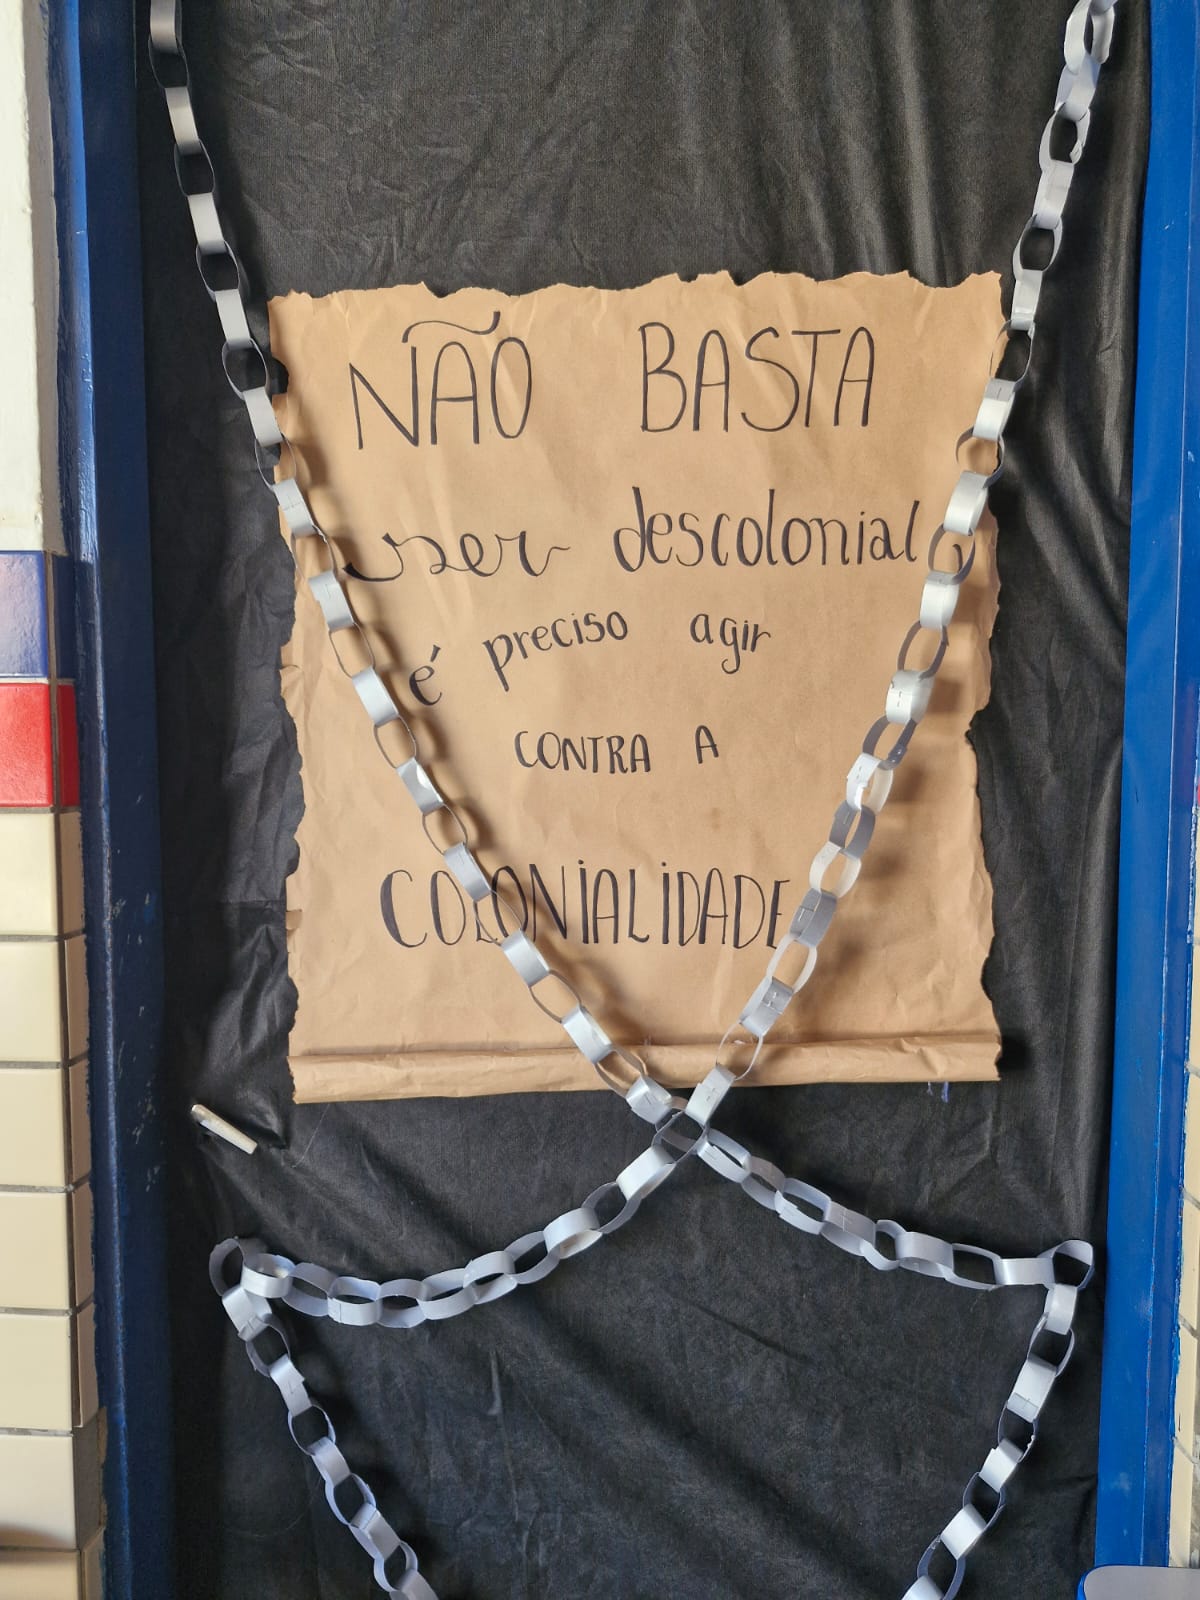 NÃO BASTA
ser descolonial
é preciso agir
CONTRA A
COLONIALIDADE